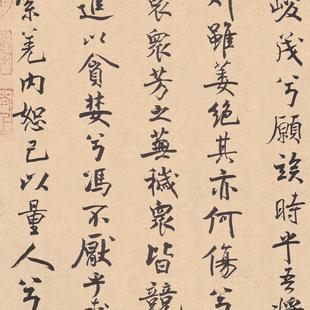 峻茂兮願竢時乎吾將
刈雖萎絕其亦何傷兮
哀衆芳之蕪穢衆皆競
進以貪婪兮馮不厭乎
索羌內恕己以量人兮